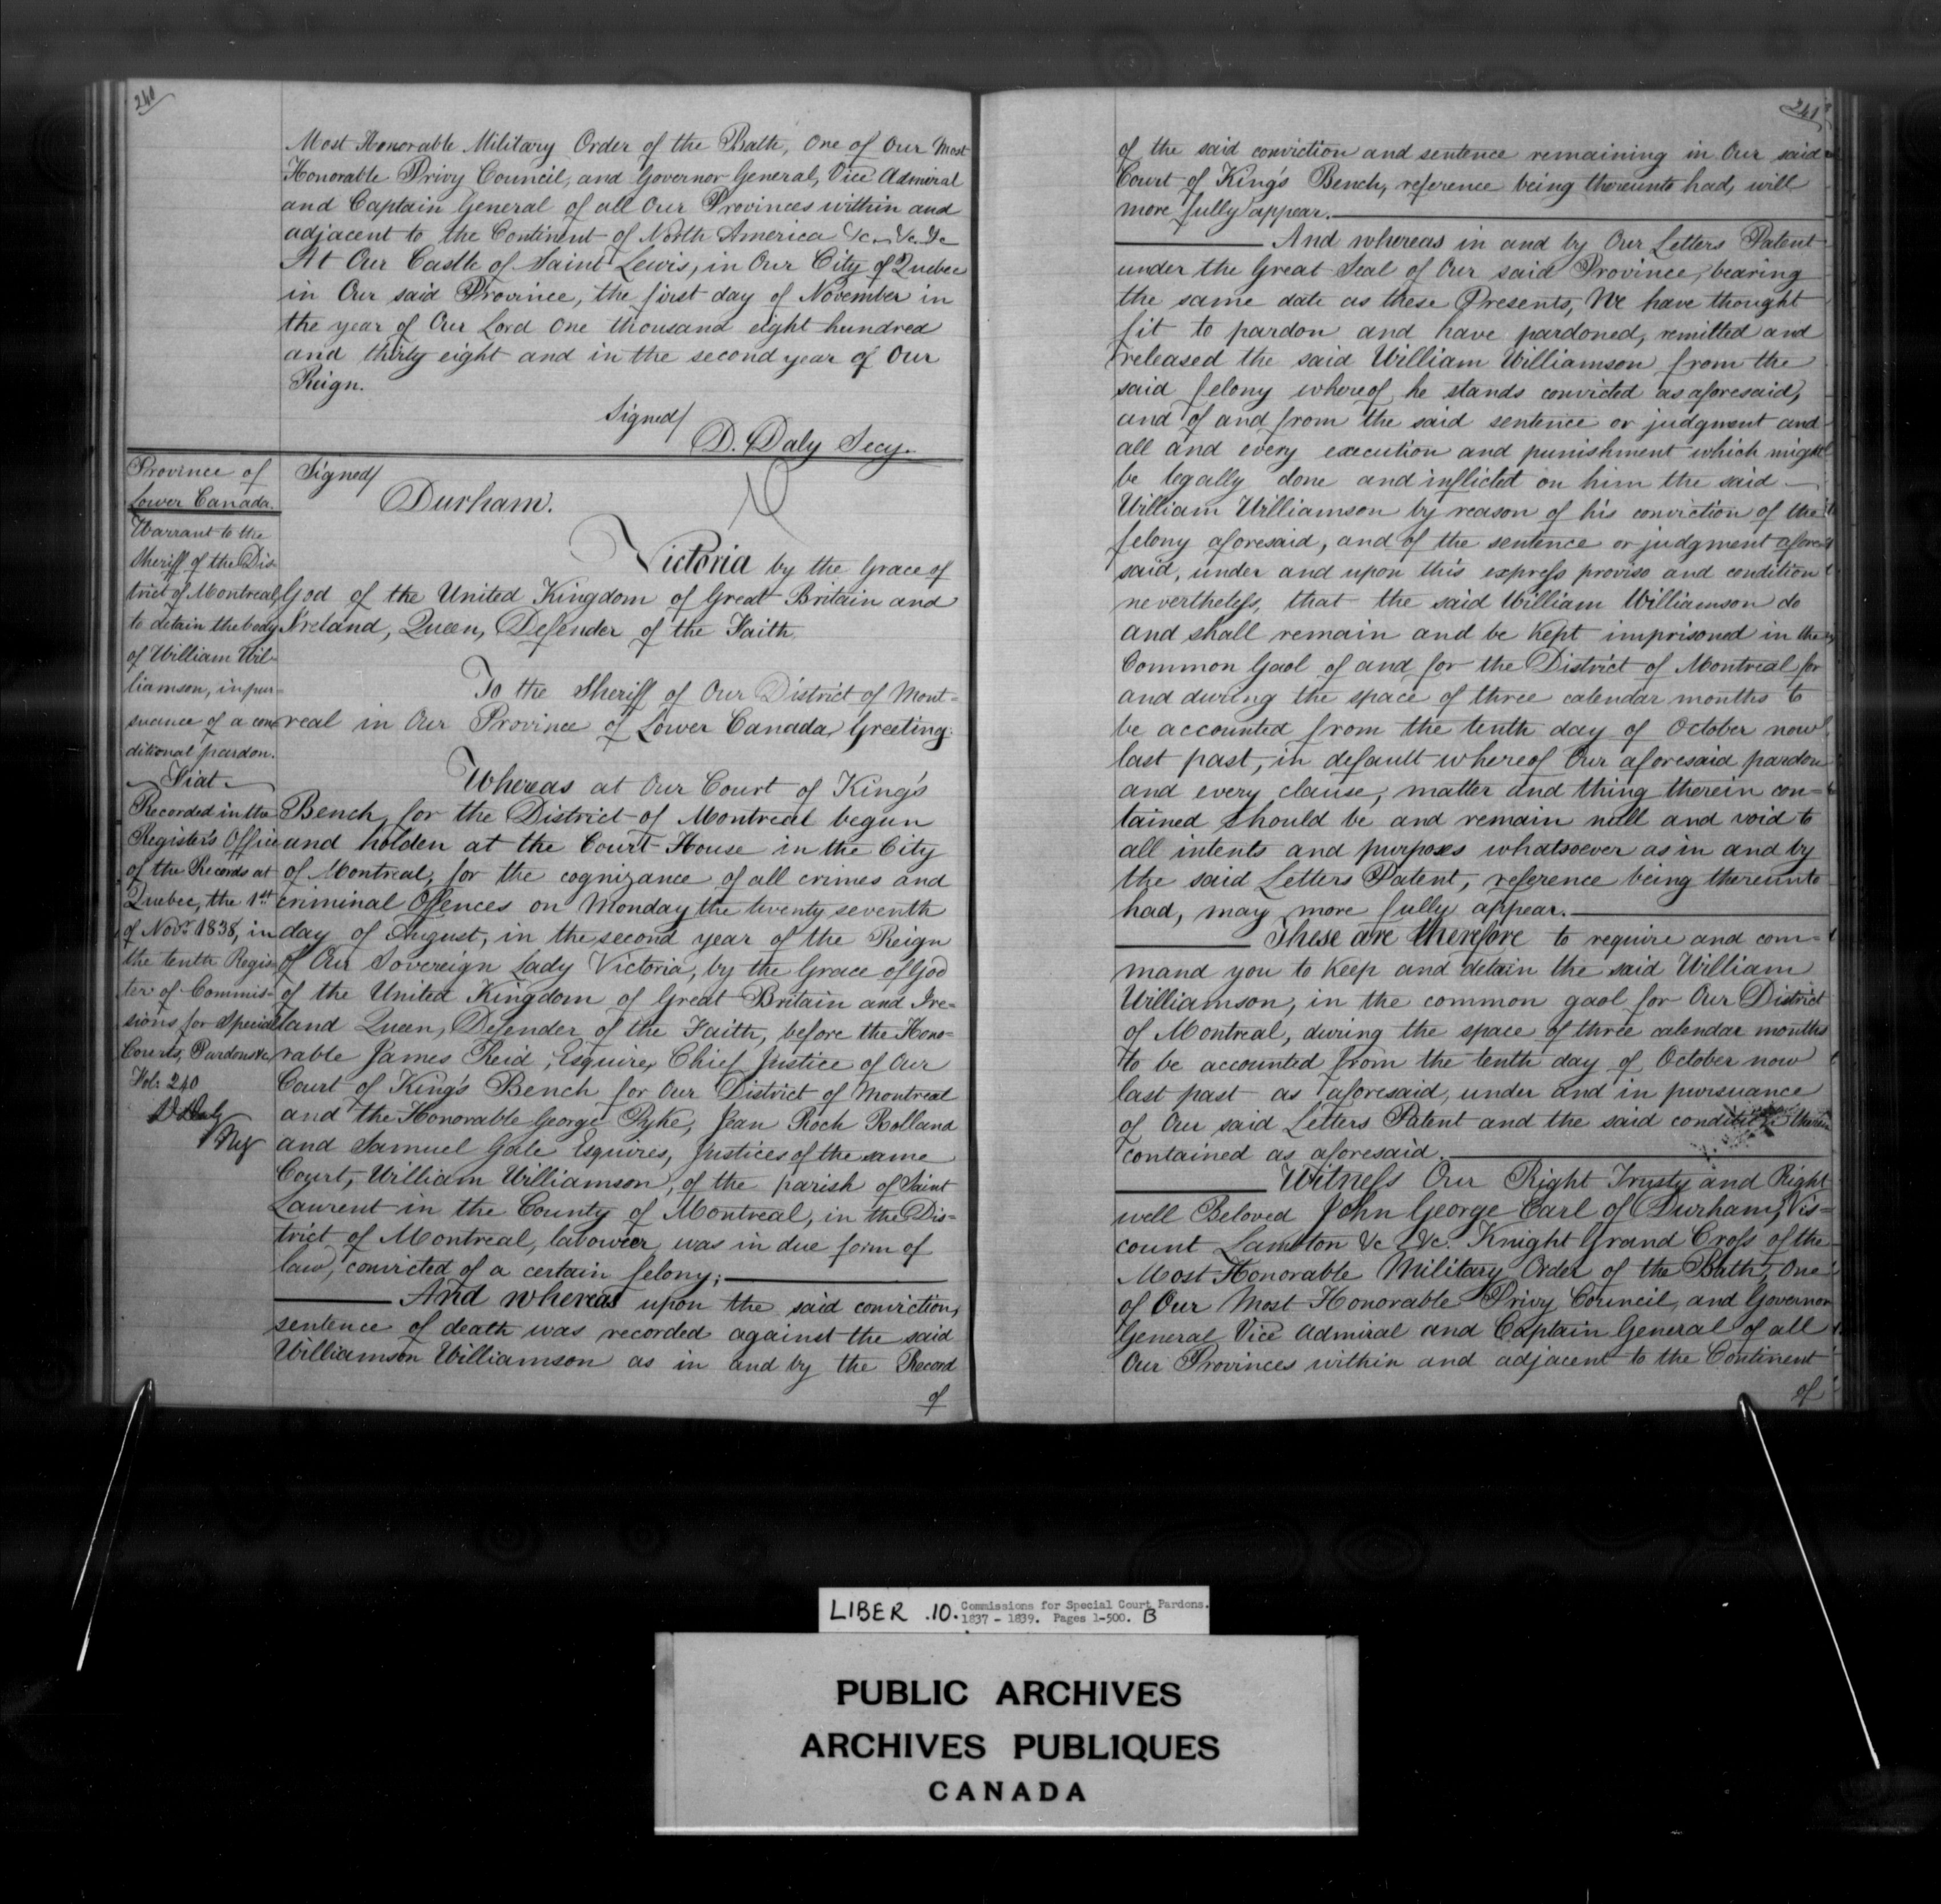 240
Most Honorable Military Order of the Bath, One of Our Most
Honorable Privy Council, and Governor General, Vice Admiral
and Captain General of all Our Provinces within and
adjacent to the Continent of North America &c. &c. &c
At Our Castle of Saint Lewis, in Our City of Quebec
in Our said Province, the first day of November in
the year of Our Lord One thousand eight hundred
and thirty eight and in the second year of Our
Reign.
Signed/
D. Daly Secy.
Province of
Lower Canada.
Warrant to the
Sheriff of the Dis-
trict of Montreal,
to detain the body
of William Wil-
liamson, in pur-
suance of a con-
ditional pardon.
Fiat.
Recorded in the
Register's Office
of the Records at
Quebec, the 1st
of Novr. 1838, in
the tenth Regis-
ter of Commis-
sions for Special
Courts, Pardons &c
Folr 240
D Daly
Reg
Signed/
Durham.
Victoria by the Grace of
God of the United Kingdom of Great Britain and
Ireland, Queen, Defender of the Faith.
To the Sheriff of Our District of Mont-
real in Our Province of Lower Canada, Greeting:
Whereas at Our Court of King's
Bench, for the District of Montreal begun
and holden at the Court House in the City
of Montreal, for the cognizance of all crimes and
criminal Offences on Monday the twenty seventh
day of August, in the second year of the Reign
of Our Sovereign Lady Victoria, by the Grace of God
of the United Kingdom of Great Britain and Ire-
land Queen, Defender of the Faith, before the Hono-
rable James Reid, Esquire, Chief Justice of Our
Court of King's Bench for Our District of Montreal
and the Honorable George Pyke, Jean Roch Rolland
and Samuel Gale Esquires, Justices of the same
Court, William Williamson, of the parish of Saint
Laurent in the County of Montreal, in the Dis-
trict of Montreal, labourer, was in due form of
law, convicted of a certain felony;
And whereas upon the said conviction,
sentence of death was recorded against the said
Williamson Williamson as in and by the Record
of
241
of the said conviction and sentence remaining in Our said
Court of King's Bench, reference being thereunto had, will
more fully appear.
And whereas in and by Our Letters Patent
under the Great Seal of Our said Province, bearing
the same date as these Presents, We have thought
fit to pardon and have pardoned, remitted and
released the said William Williamson from the
said felony whereof he stands convicted as aforesaid,
and of and from the said sentence or judgment and
all and every execution and punishment which might
be legally done and inflicted on him the said
William Williamson by reason of his conviction of the
felony aforesaid, and of the sentence or judgment afore
said, under and upon this express proviso and condition
nevertheless, that the said William Williamson do
and shall remain and be kept imprisoned in the
Common Gaol of and for the District of Montreal for
and during the space of three calendar months to
be accounted from the tenth day of October now
last past, in default whereof Our aforesaid pardon
and every clause, matter and thing therein con-
tained should be and remain null and void to
all intents and purposes whatsoever as in and by
the said Letters Patent, reference being thereunto
had, may more fully appear.
These are therefore to require and com-
mand you to keep and detain the said William
Williamson, in the common gaol for Our District
of Montreal, during the space of three calendar months
to be accounted from the tenth day of October now
last past as aforesaid, under and in pursuance
of Our said Letters Patent and the said condition therein
contained as aforesaid.
Witness Our Right Trusty and Right
well Beloved John George Earl of Durham, Vis-
count Lambton &c &c. Knight Grand Cross of the
Most Honorable Military Order of the Bath, One
of Our Most Honorable Privy Council, and Governor
General Vice Admiral and Captain General of all
Our Provinces within and adjacent to the Continent
of
LIBER .10. Commissions for Special Court Pardons.
1837 - 1839. Pages 1-500. B
PUBLIC ARCHIVES
ARCHIVES PUBLIQUES
CANADA